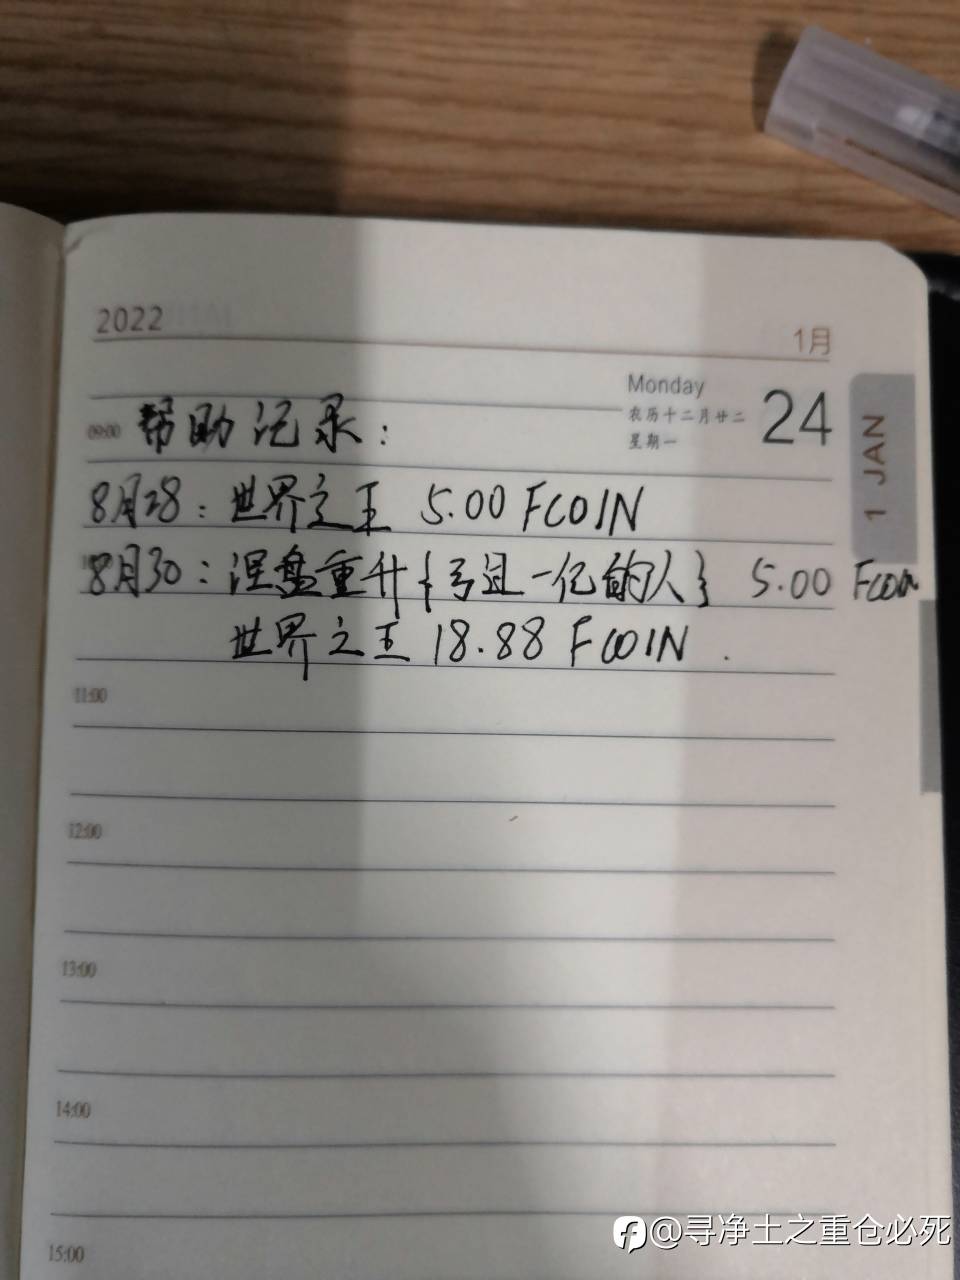 2022
1月
Monday
农历十二月廿二
星期一
24
1 JAN
09:00 帮助记录：
8月28：世界之王 5.00 FCOIN
8月30：涅盘重升{亏过一亿的人} 5.00 Fcoin
世界之王 18.88 FCOIN.
11:00
12:00
13:00
14:00
15:00
@寻净土之重仓必死